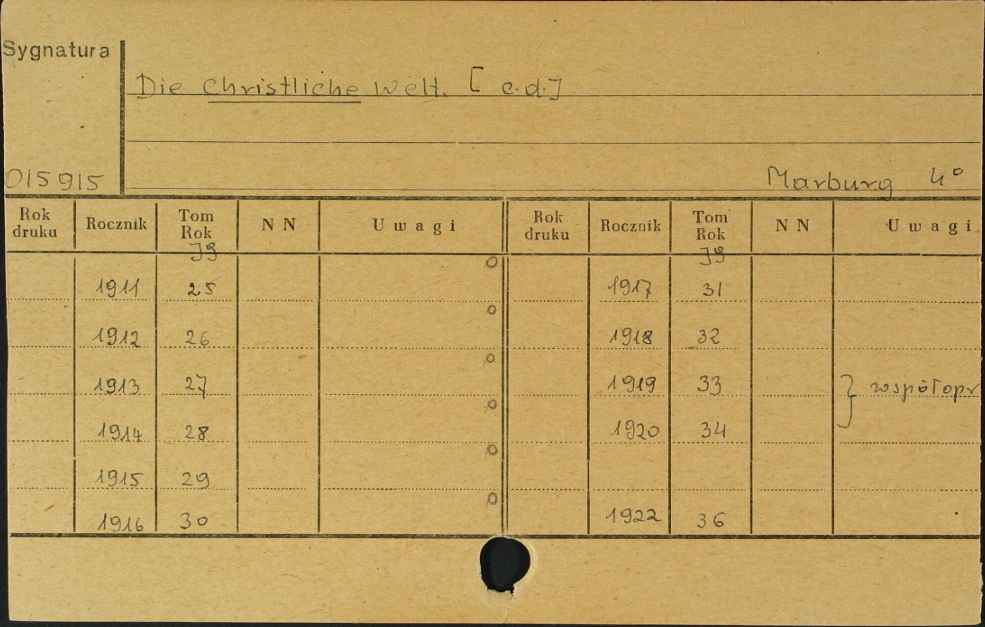 Sygnatura
Die Christliche Welt. [c.d.]
015915
Marburg 4°
Rok druku Rocznik Tom Rok NN Uwagi Rok druku Rocznik Tom Rok NN Uwagi
Jg Jg
1911 25 1917 31
1912 26 1918 32
1913 27 1919 33 } współopr
1914 28 1920 34
1915 29
1916 30 1922 36